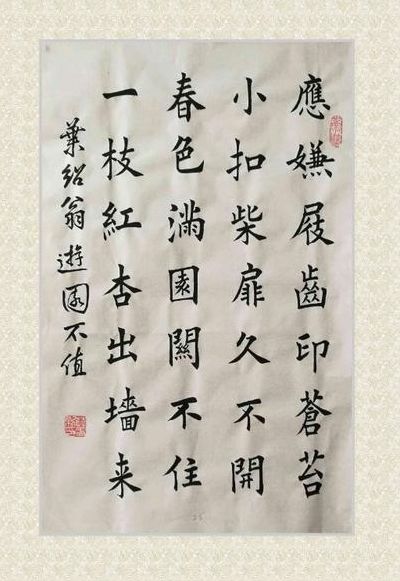 應嫌屐齒印蒼苔
小扣柴扉久不開
春色滿園關不住
一枝紅杏出墻来
葉紹翁遊園不值